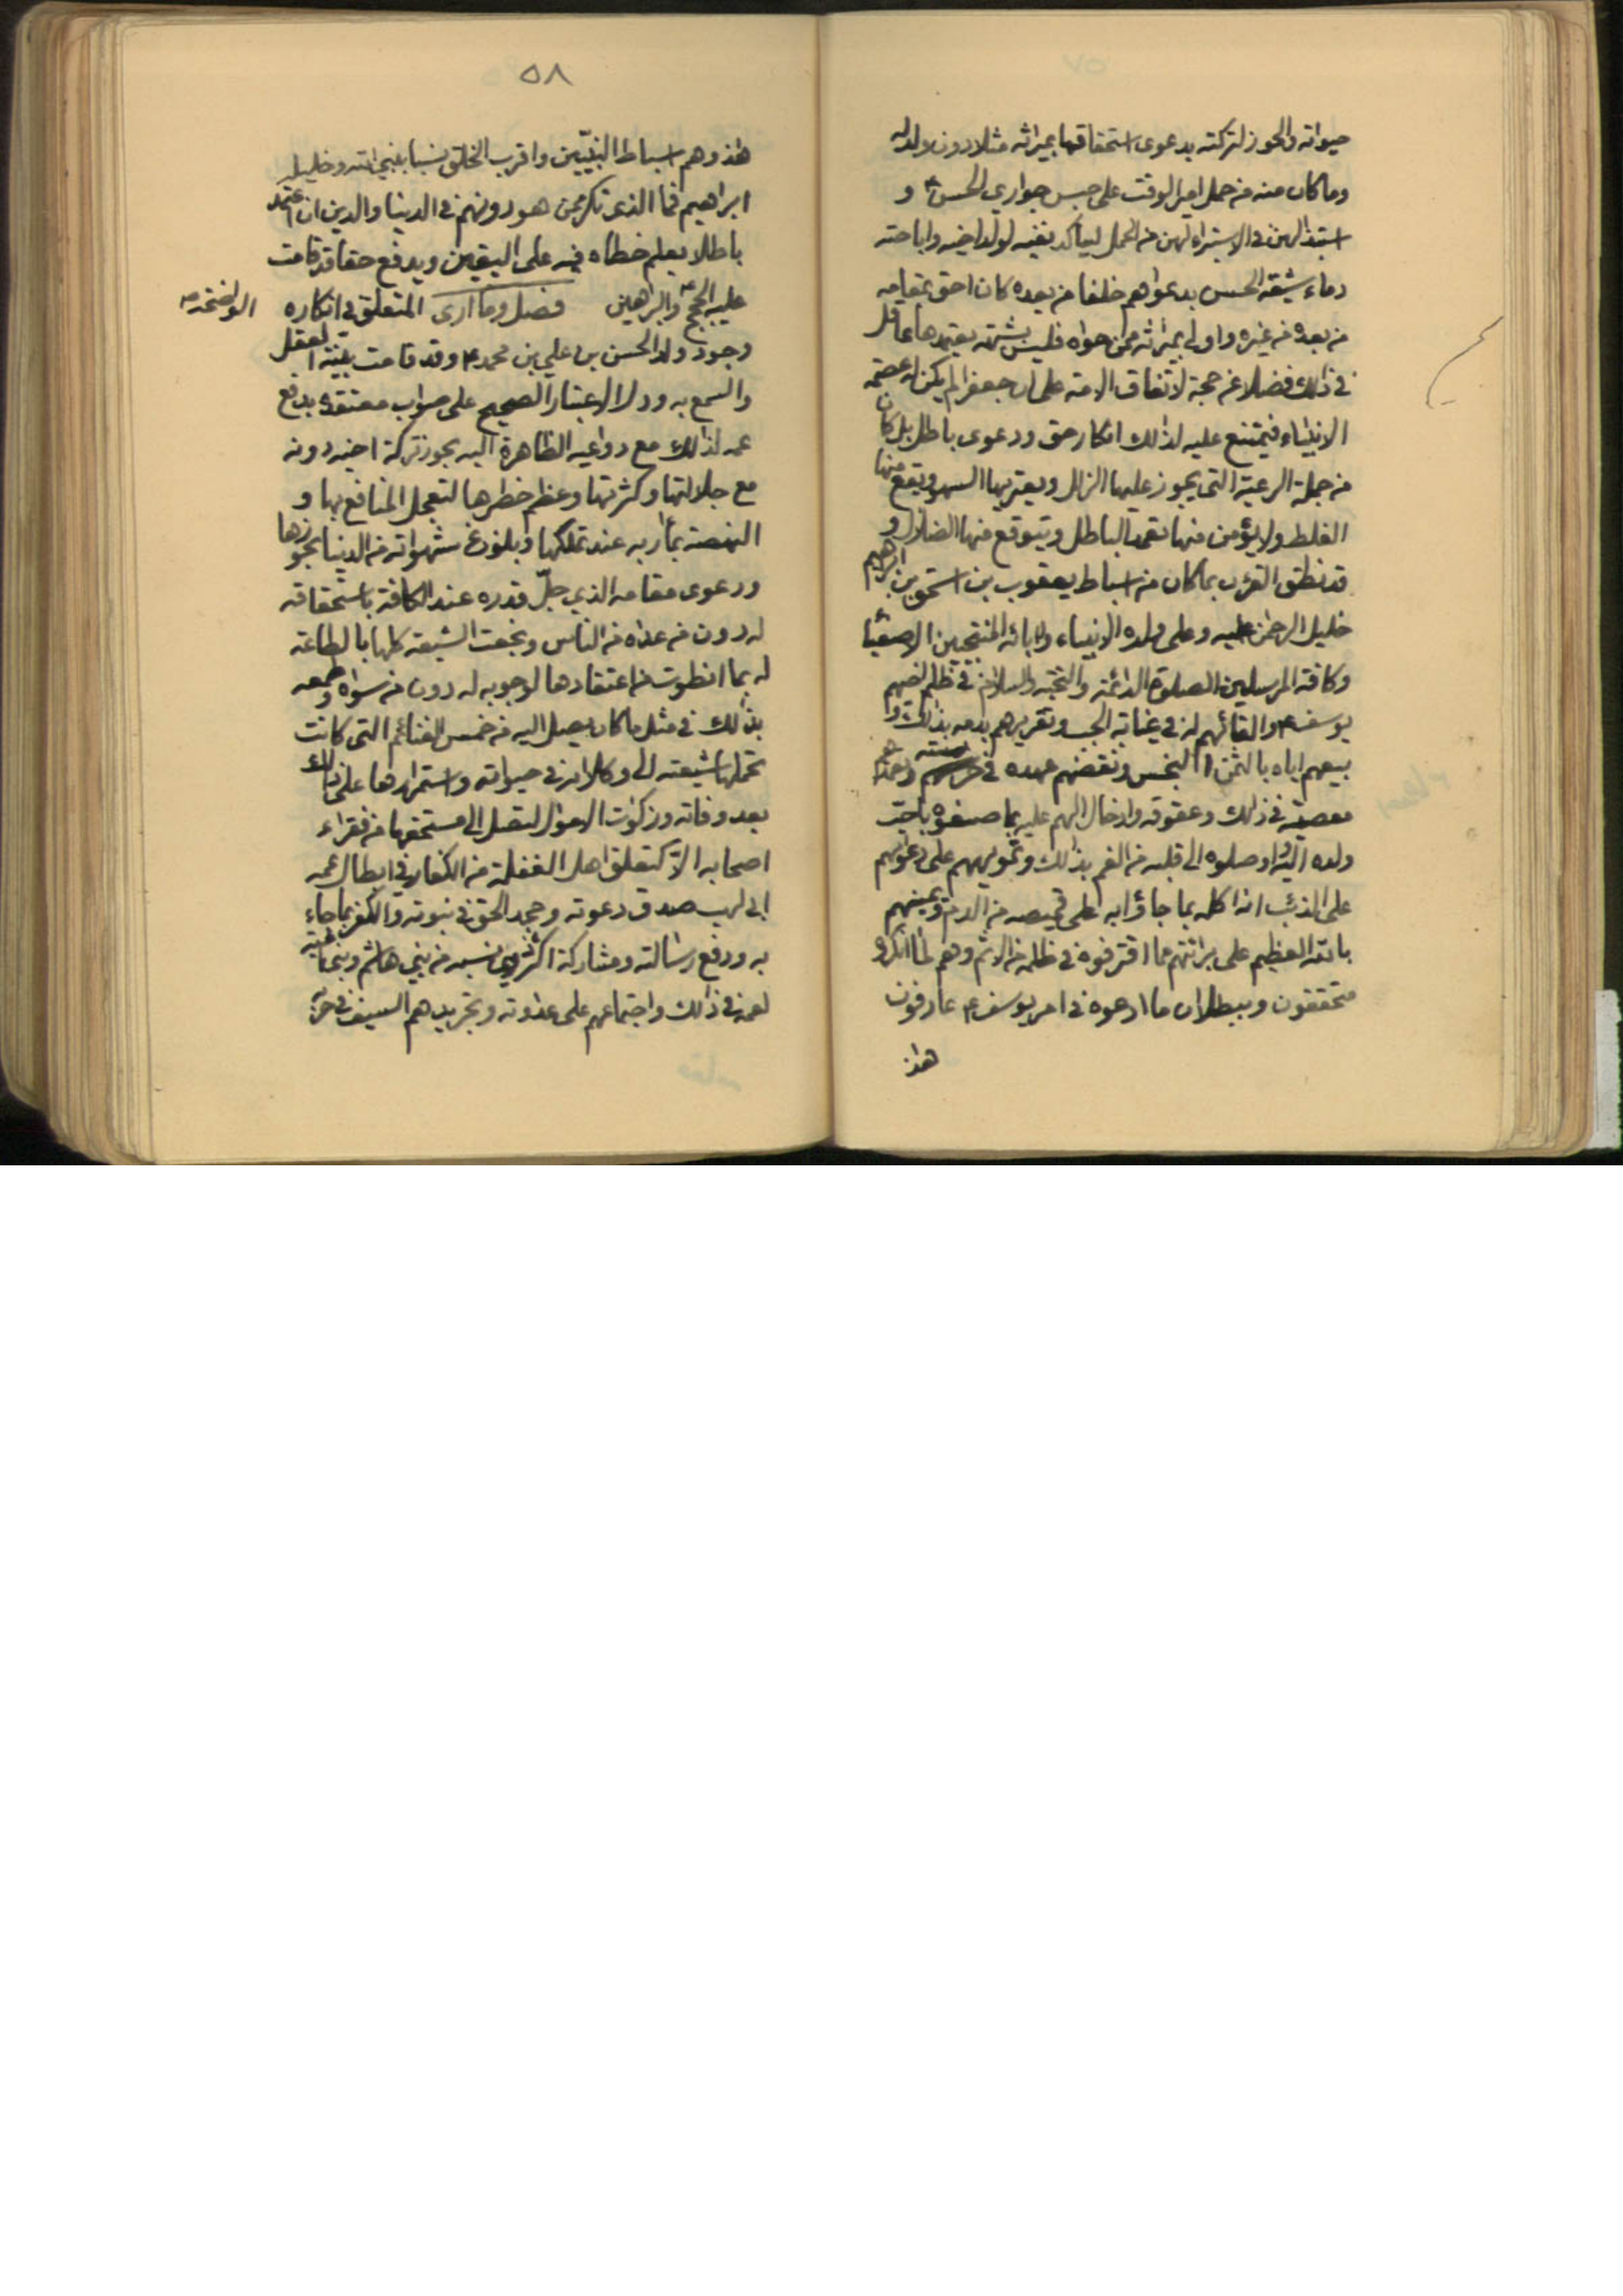 حيواته والحوز لتركته بدعوى استحقاقها بميراثه مثلا دون ولد له
وما كان منه من حمل امير الوقت على حبس جواري الحسن ع و
استبذالهن في الاستبراء لهن من الحمل ليتأكد نفيه لولد اخيه واباحته
دماء شيعة الحسن بدعواهم خلفا من بعده كان احق بمقامه
من بعده من غيره واولى بميراثه ممن حواه فليس بشبهة يعتمدها عاقل
في ذلك فضلا عن حجة لاتفاق الامة على ان جعفرا لم يكن له عصمة
الانبياء فيمتنع عليه لذلك انكار حق ودعوى باطل بل كان
من جملة الرعية التي يجوز عليها الزلل ويعتريها السهو ويقع منها
الغلط ولا يؤمن منها تعمد الباطل ويتوقع منها الضلال و
قد نطق القرءن بما كان من اسباط يعقوب بن اسحق بن ابراهيم
خليل الرحمن عليه وعلى ولده الانبياء وابائه المنتجبين الاصفياء
وكافة المرسلين الصلوة الدائمة والتحية والسلام في ظلم اخيهم
يوسف ع والقائهم له في غيابة الجب وتغريرهم بدمه بذلك و
بيعهم اياه بالثمن البخس ونقضهم عهده في حراسته وتعمدهم
معصيته في ذلك وعقوقه وادخال الهم عليه بما صنعوه باحب
ولده اليه واوصلوه الى قلبه من الغم بذلك وتمويههم على دعواهم
على الذئب انه اكله بما جاؤا به على قميصه من الدم ويمينهم
بالله العظيم على برائتهم مما اقترفوه في ظلمه من الاثم وهم لما انكروه
متحققون وببطلان ما ادعوه في امر يوسف ع عارفون
هذا
٥٨
هذا وهم اسباط النبيين واقرب الخلق نسبا بنبي الله وخليله
ابراهيم فما الذي نكر ممن هو دونهم في الدنيا والدين ان اعتمد
باطلا يعلم خطاه فيه على اليقين ويدفع حقا قد قامت
عليه الحجج والبراهين فصل وما ارى المتعلق في انكاره
وجود ولد الحسن بن علي بن محمد ع وقد قامت بينة العقل
والسمع به ودل الاعتبار الصحيح على صواب معتقده بدفع
عمه لذلك مع دواعيه الظاهرة اليه بحوز تركة اخيه دونه
مع جلالتها وكثرتها وعظم خطرها لتعجل المنافع بها و
النهضة بمآربه عند تملكها وبلوغ شهواته من الدنيا بحوزها
ودعوى مقامه الذي جل قدره عند الكافة باستحقاقه
له دون من عداه من الناس وبخعت الشيعة كلها بالطاعة
له بما انطوت من اعتقادها لوجوبه له دون من سواه وطمعه
بذلك في مثل ما كان يصل اليه من خمس الغنائم التي كانت
تحملها شيعته الى وكلائه في حيواته واستمرارها على ذلك
بعد وفاته وزكوات الاموال لتصل الى مستحقها من فقراء
اصحابه الا كتعلق اهل الغفلة من الكفار في ابطال عمه
ابي لهب صدق دعوته وجحد الحق في نبوته والكفر بما جاء
به ودفع رسالته ومشاركة اكثر ذوي نسبه من بني هاشم وبني امية
لعمه في ذلك واجتماعهم على عداوته وتجريدهم السيف في حربه